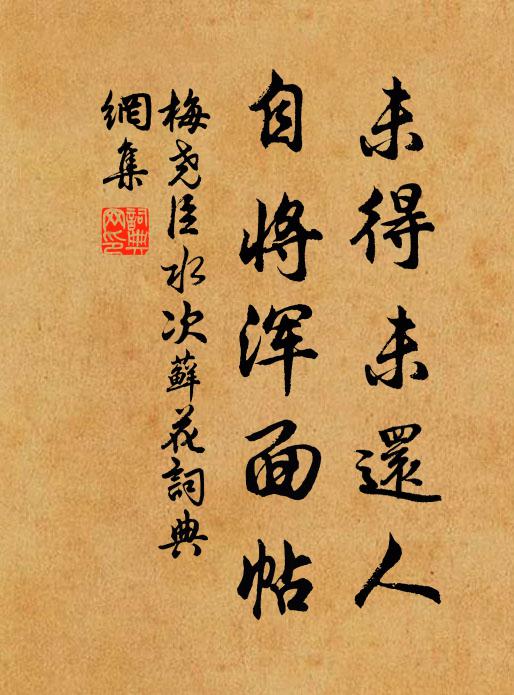 未得未還人
自将浑面帖
梅尧臣水次蘚花詞典
網集
詞典
网印